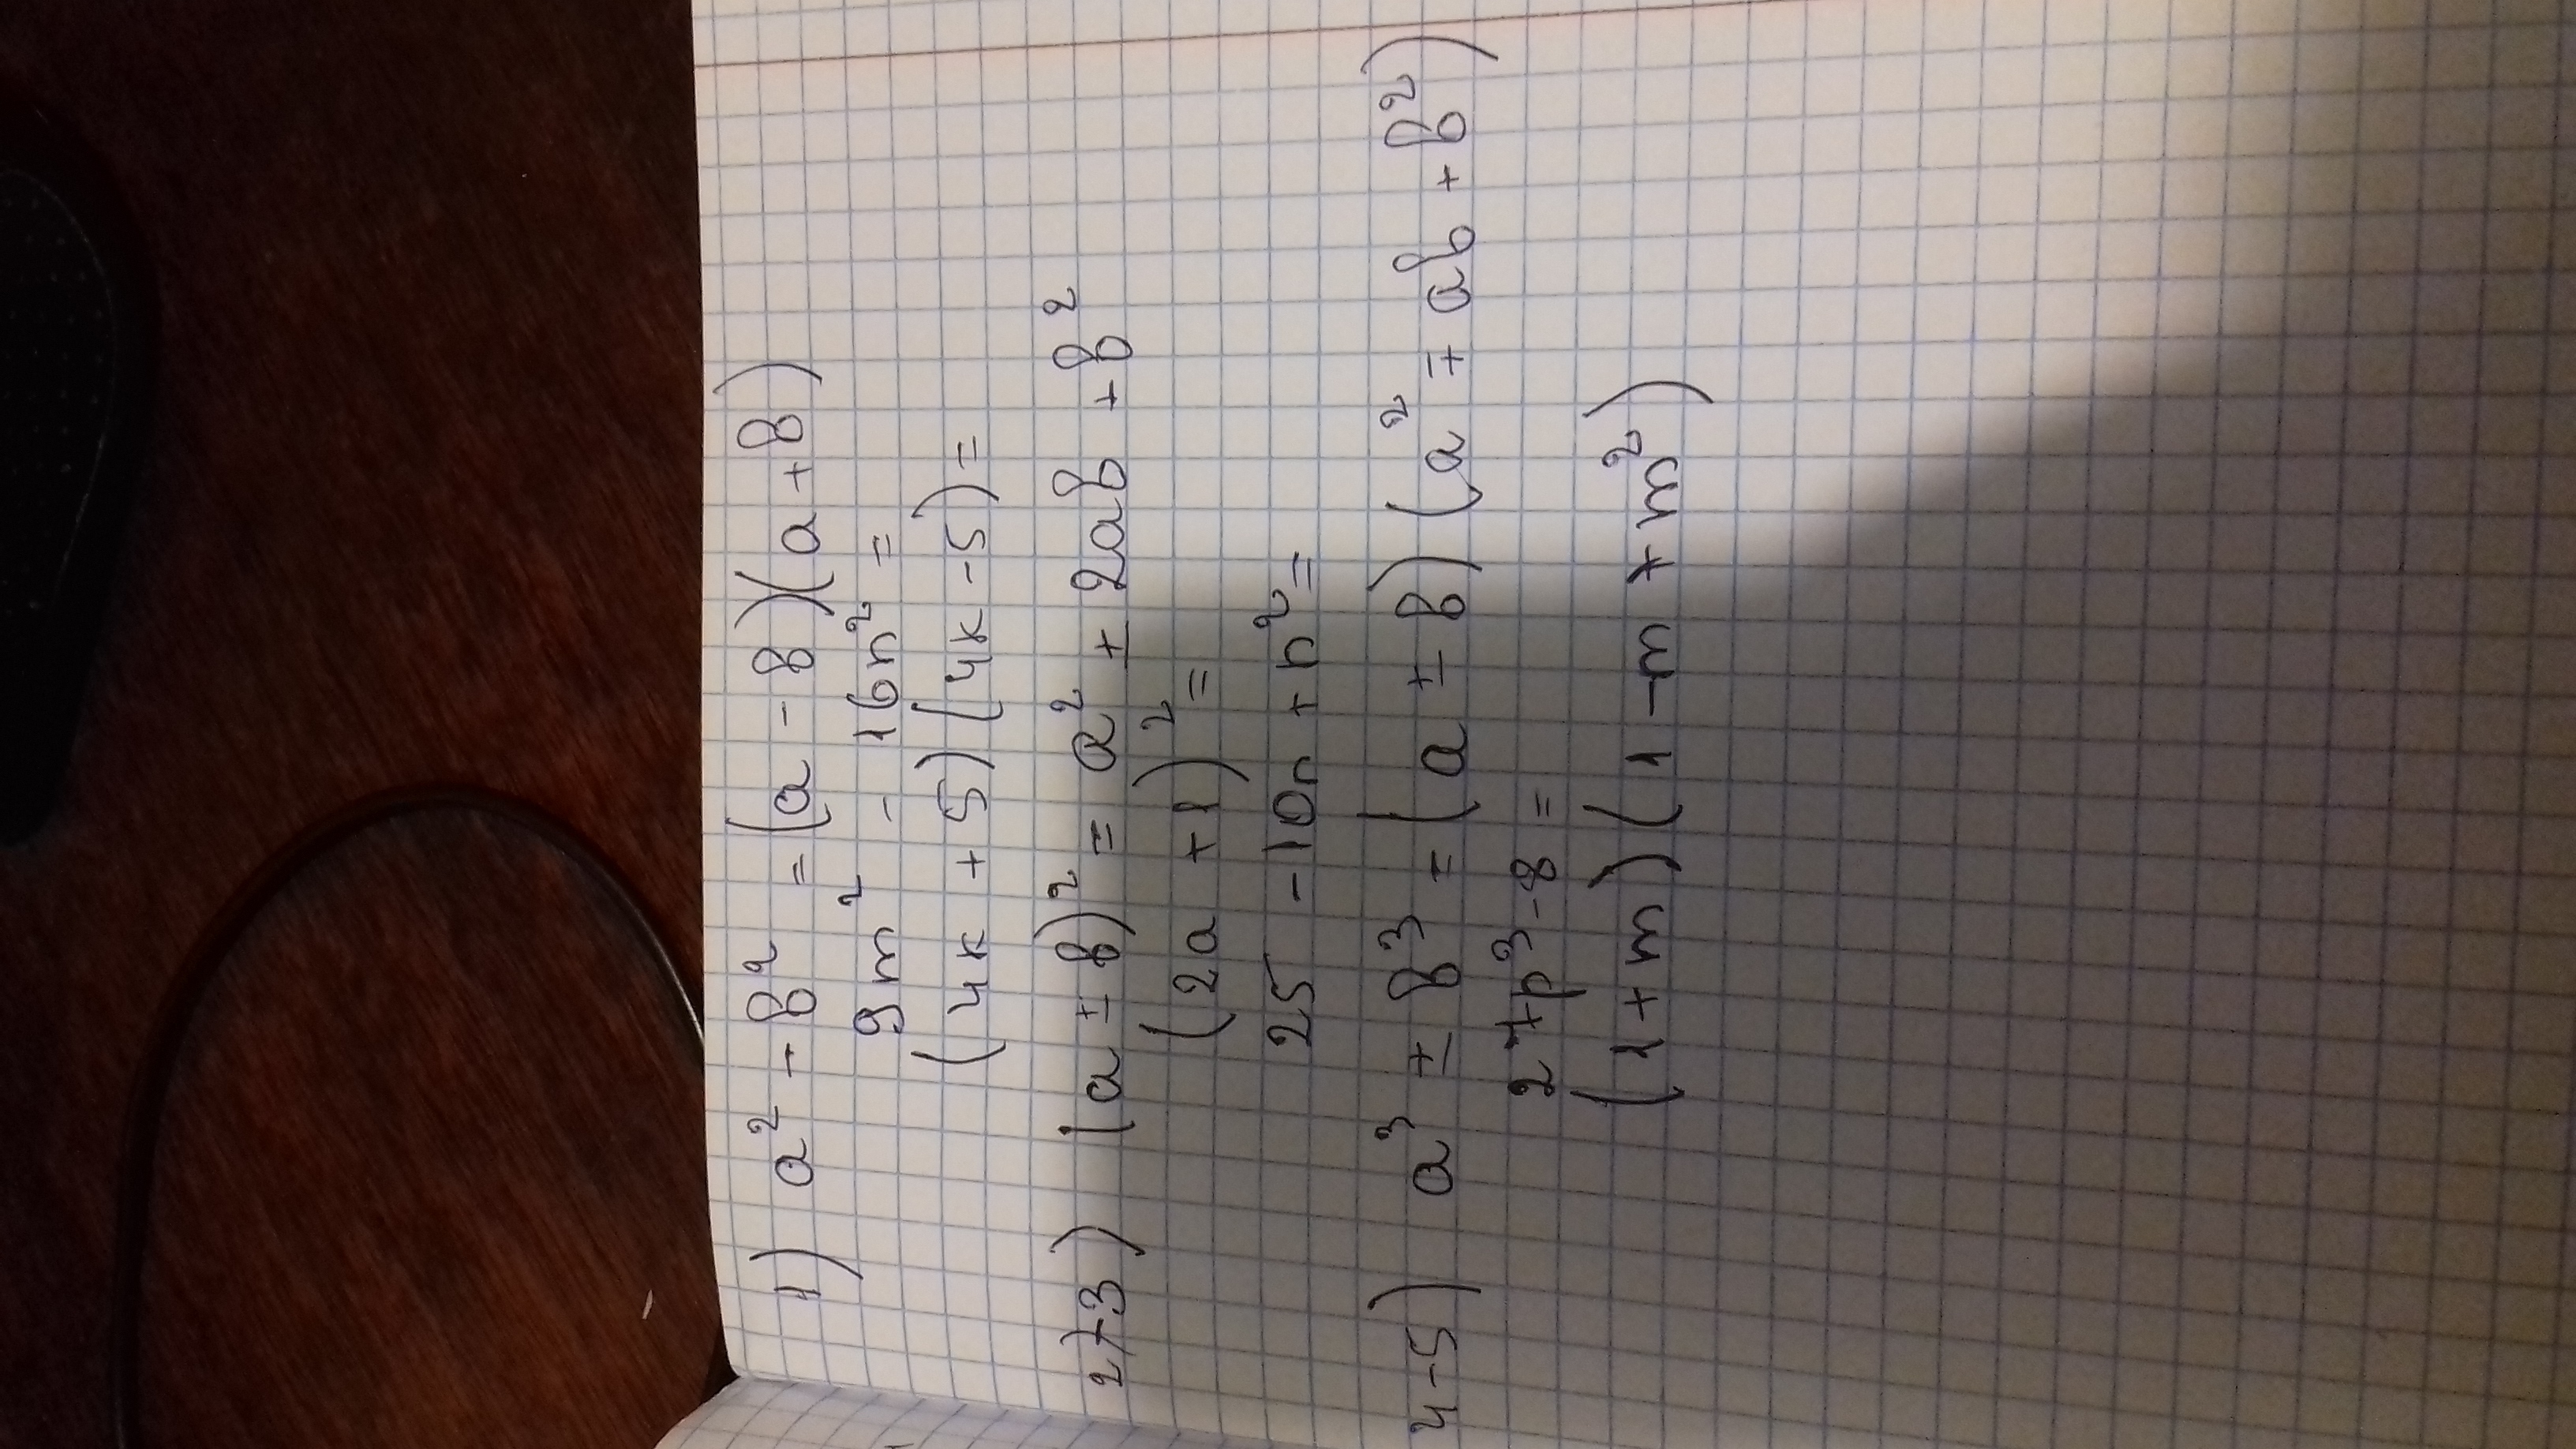 1) a² - в² = (a - в)(a + в)
9m² - 16n² =
(4к + 5)(4к - 5) =
2)+3) (a ± в)² = a² ± 2aв + в²
(2a + 1)² =
25 - 10n + n² =
4-5) a³ ± в³ = (a ± в)(a² ∓ ab + в²)
27p³ - 8 =
(1 + m)(1 - m + m²)